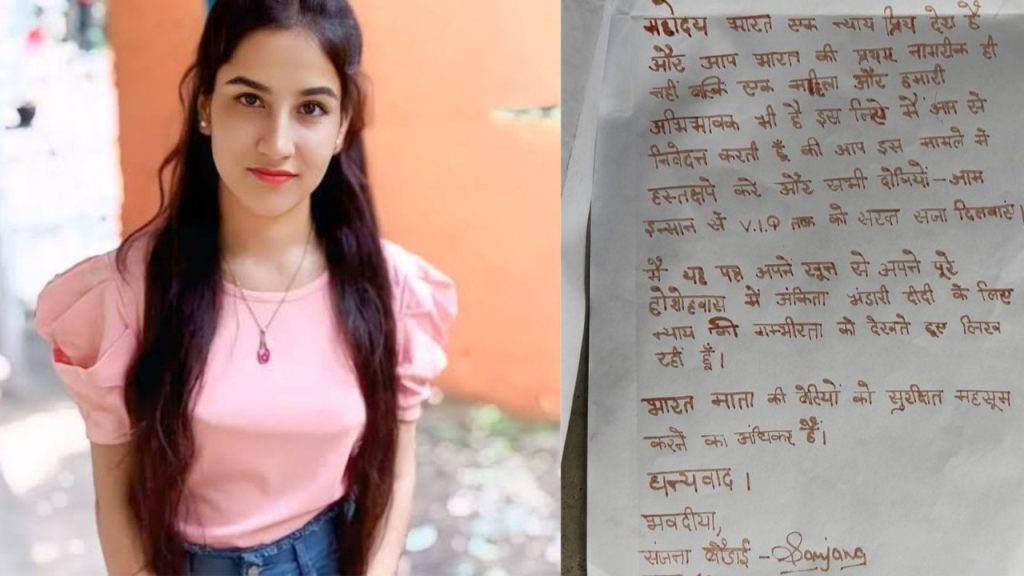 महोदय भारत एक न्याय प्रिय देश है
और आप भारत की प्रथम नागरीक ही
नही बल्कि एक महिला और हमारी
अभिभावक भी है इस लिये मैं आप से
निवेदन करती हूँ की आप इस मामले में
हस्तक्षपे करे और सभी दोषियों-आम
इन्सान से V.I.P तक को सख्त सजा दिलवाएं।
मैं यह पत्र अपने खून से अपने पूरे
होशोहवास में अंकिता भंडारी दीदी के लिए
न्याय की गम्भीरता को देखते हुए लिख
रही हूँ।
भारत माता की बेटियों को सुरक्षित महसूस
करने का अधिकार हैं।
धन्यवाद।
भवदीया,
संजना - Sanjana